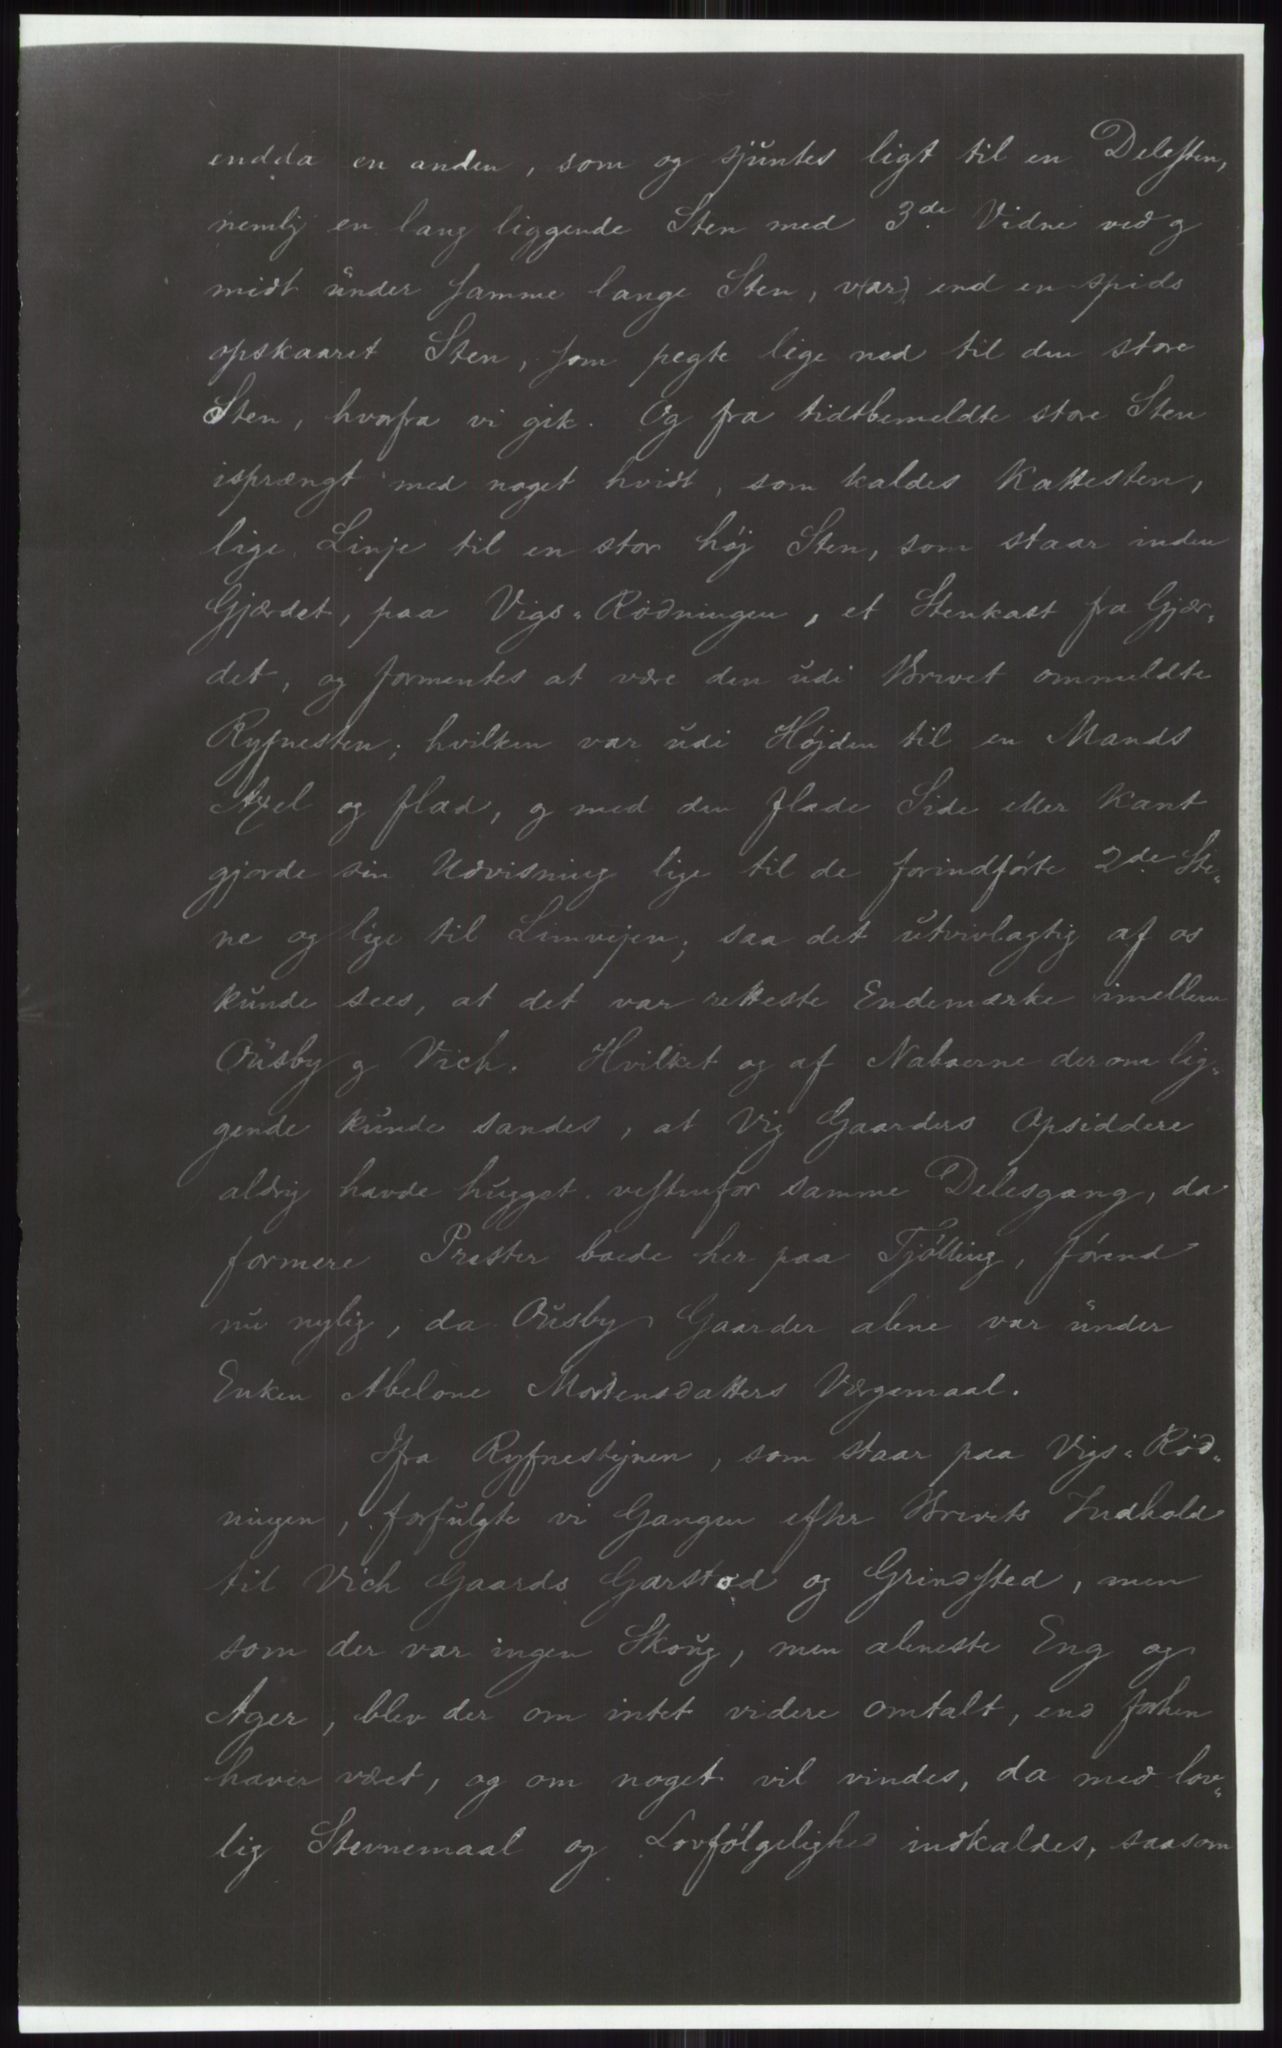 endda en anden, som og sjuntes ligt til en Delesten,
nemlig en lang liggende Sten med 3de. Vidne ved og
midt under samme lange Sten, v(ar) end en spids
opskaaret Sten, som pegte lige ned til den store
Sten, hvorfra vi gik. Og fra tidtbemeldte store Sten
isprængt med noget hvidt, som kaldes Kattesten,
lige Linje til en stor høj Sten, som staar inden
Gjærdet, paa Vigs-Rødningen, et Stenkast fra Gjær-
det, og formentes at være den udi Brevet ommeldte
Ryfnesten; hvilken var udi Højden til en Mands
Axel og flad, og med den flade Side eller Kant
gjorde sin Udvisning lige til de forindførte 2de. Ste-
ne og lige til Limvejen; saa det utvivlagtig af os
kunde sees, at det var retteste Endemærke imellem
Ousby og Vich. Hvilket og af Naboerne derom lig-
gende kunde sandes, at Vig Gaarders Opsiddere
aldrig havde hugget vestenfor samme Delesgang, da
formere Prester boede her paa Tjølling, førend
nu nylig, da Ousby Gaarder alene var under
Enken Abelone Mortensdatters Værgemaal.
Ifra Ryfnestejnen, som staar paa Vigs-Rød-
ningen, forfulgte vi Gangen efter Brevets Indhold
til Vich Gaards Garstod og Grindsted, men
som der var ingen Skoug, men aleneste Eng og
Ager, blev der om intet videre omtalt, end forhen
haver været, og om noget vil vindes, da med lov-
lig Stevnemaal og Lovfølgelighed indkaldes, saasom